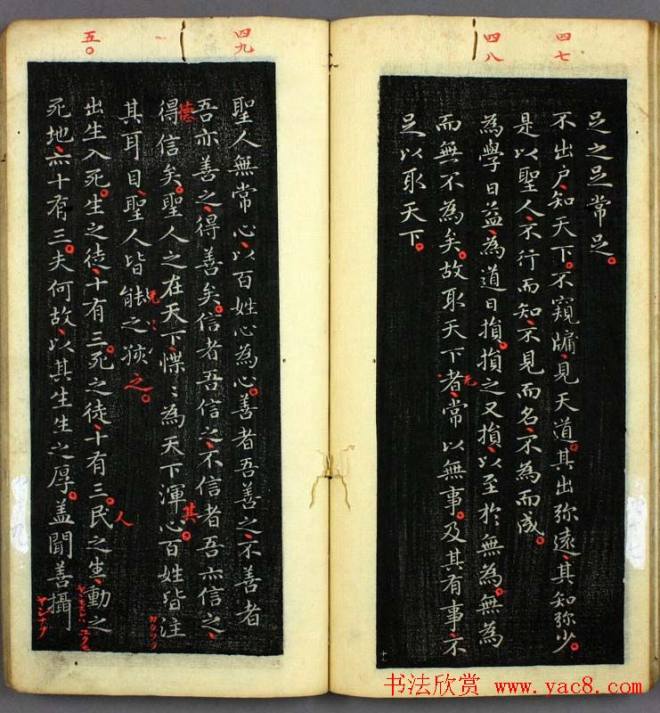 四七
四八
足之足常足。
不出户知天下。不窺牖見天道。其出弥遠、其知弥少。
是以聖人不行而知、不見而名、不為而成。
為學日益、為道日損、損之又損、以至於無為。無為
而無不為矣。故取天下者、常以無事。及其有事、不
足以取天下。
四九
五〇
聖人無常心、以百姓心為心。善者吾善之、不善者
吾亦善之、得善矣。信者吾信之、不信者吾亦信之、
德
得信矣。聖人之在天下、惵〻為天下渾心。百姓皆注
其
其耳目、聖人皆能之孩之。
出生入死。生之徒、十有三。死之徒、十有三。民之生、動之
人
死地、亦十有三。夫何故、以其生生之厚。盖聞善攝
书法欣赏 www.yac8.com